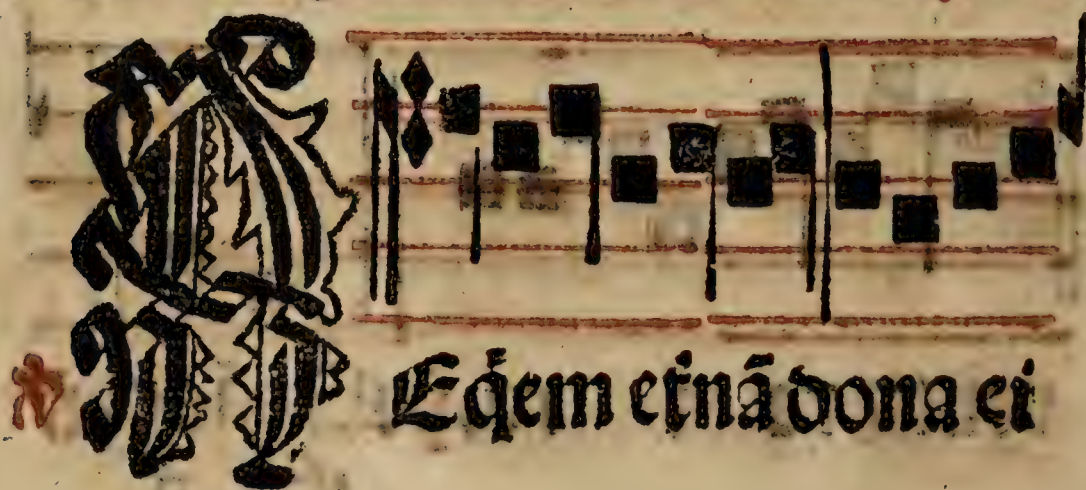 REq̃em et̃nã dona ei